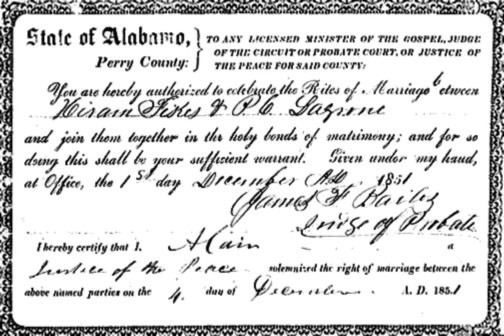 State of Alabamo,
Perry County:
TO ANY LICENSED MINISTER OF THE GOSPEL, JUDGE
OF THE CIRCUIT OR PROBATE COURT, OR JUSTICE OF
THE PEACE FOR SAID COUNTY:
You are hereby authorized to celebrate the Rites of Marriage between
Hiram Fikes & P. C. Lagrone
and join them together in the holy bonds of matrimony; and for so
doing this shall be your sufficient warrant. Given under my hand,
at Office, the 1st day December A.D. 1851
James F Bailey
Judge of Probate
I hereby certify that I, A Cain a
Justice of the Peace solemnized the right of marriage between the
above named parties on the 4 day of December A. D. 1851